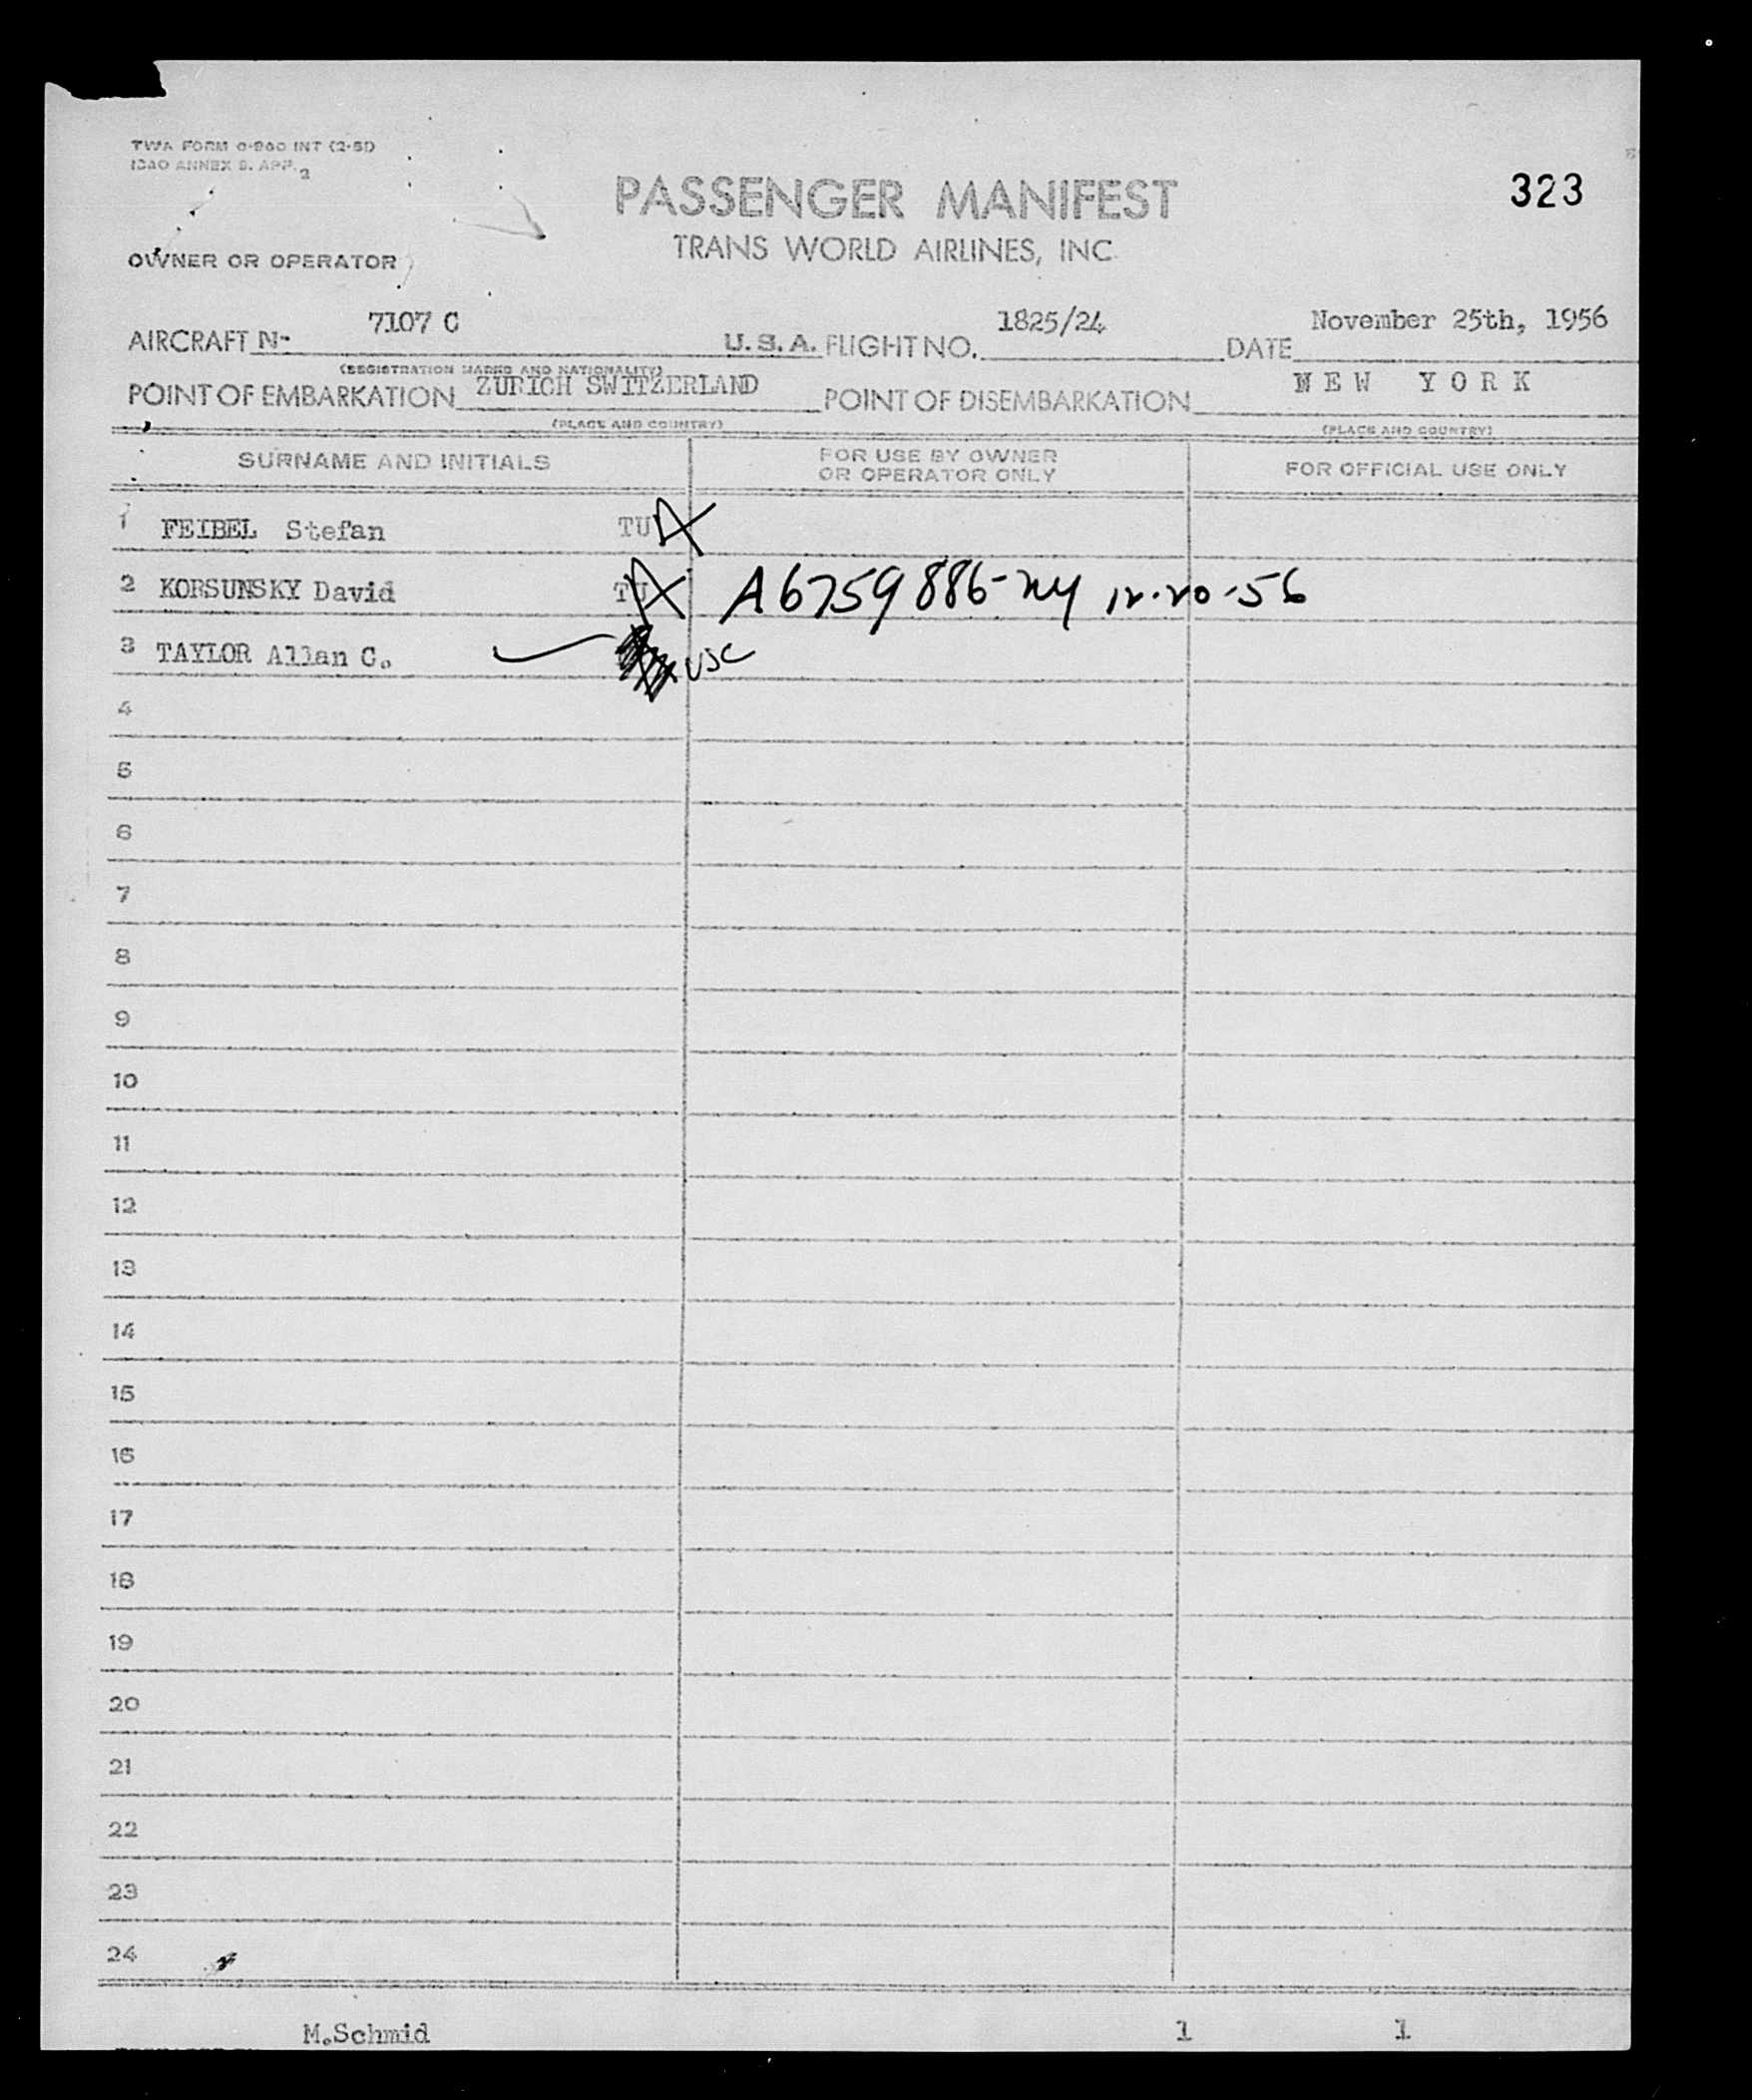 TWA FORM O-860 INT (2-51)
ICAO ANNEX 9. APP. 2
323
PASSENGER MANIFEST
TRANS WORLD AIRLINES, INC.
OWNER OR OPERATOR
AIRCRAFT N- 7107 C U.S.A. FLIGHT NO. 1825/24 DATE November 25th, 1956
(REGISTRATION MARKS AND NATIONALITY)
POINT OF EMBARKATION ZURICH SWITZERLAND POINT OF DISEMBARKATION NEW YORK
(PLACE AND COUNTRY) (PLACE AND COUNTRY)
SURNAME AND INITIALS FOR USE BY OWNER OR OPERATOR ONLY FOR OFFICIAL USE ONLY
1 FEIBEL Stefan TU A
2 KORSUNSKY David TU A A6759886-NY 12-20-56
3 TAYLOR Allan C. USC
4
5
6
7
8
9
10
11
12
13
14
15
16
17
18
19
20
21
22
23
24
M.Schmid 1 1